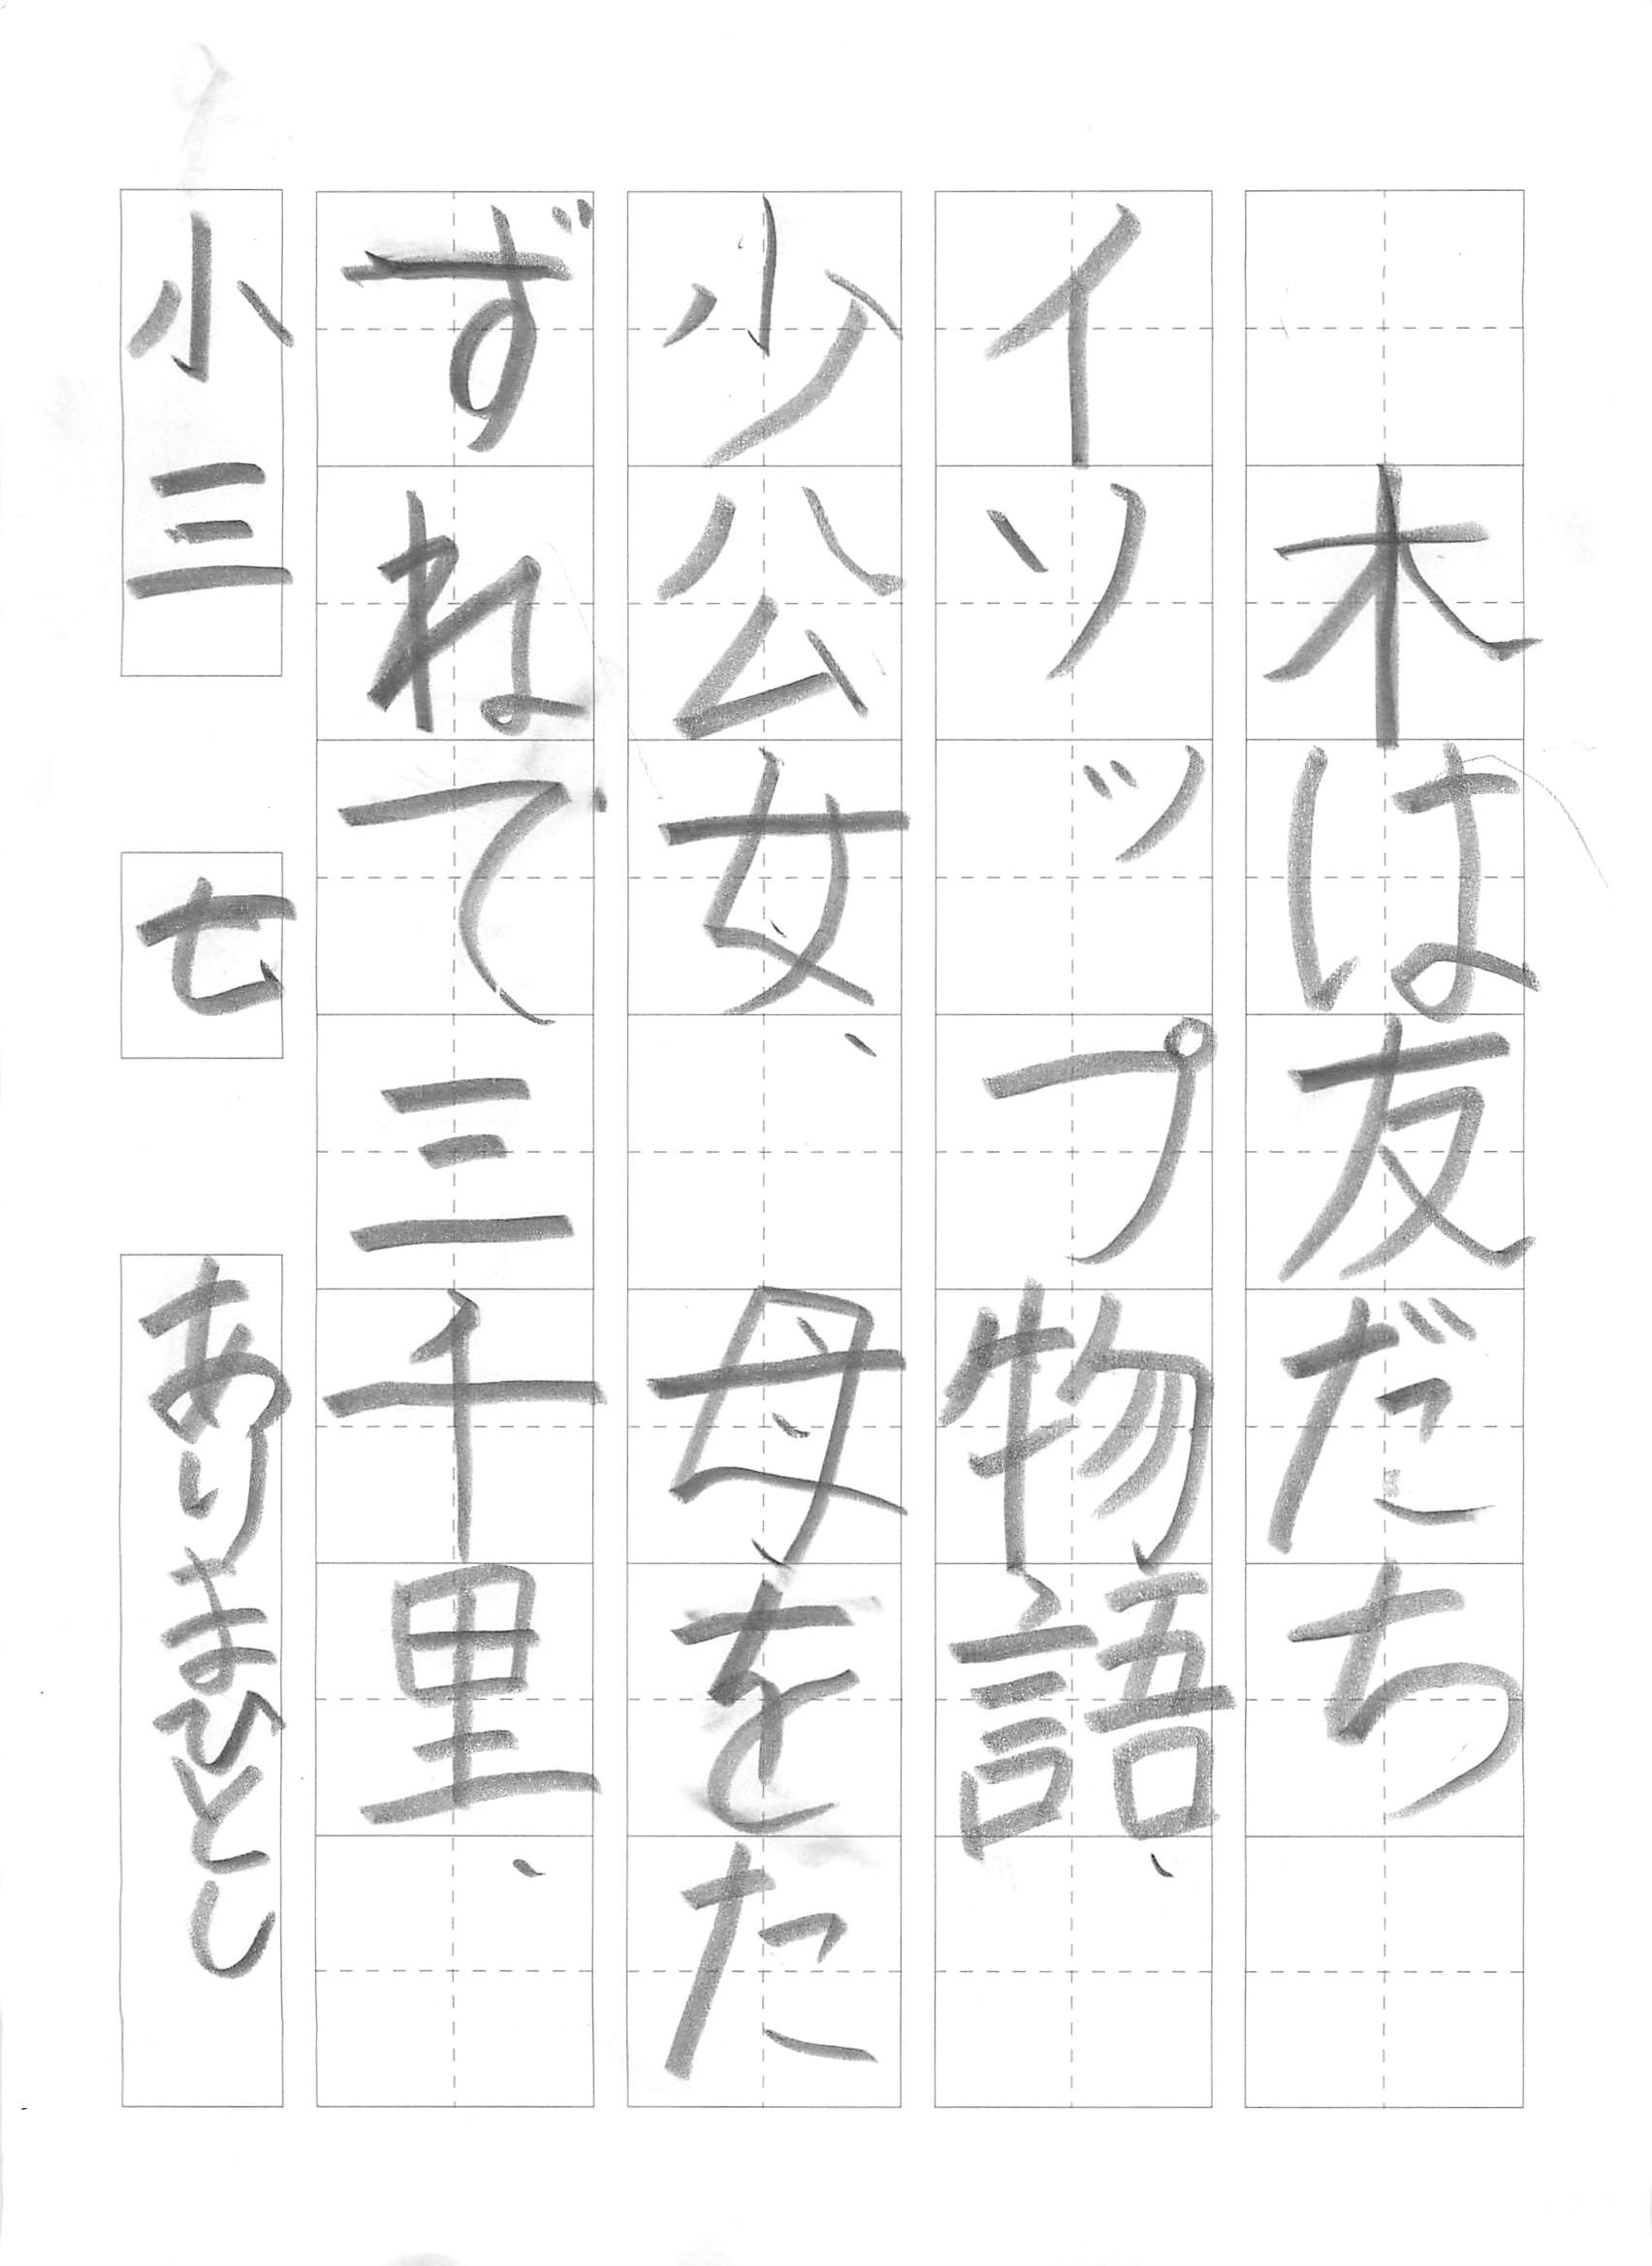 木は友だち
イソップ物語、
少公女、母をた
ずねて三千里、
小三 七 ありまひとし